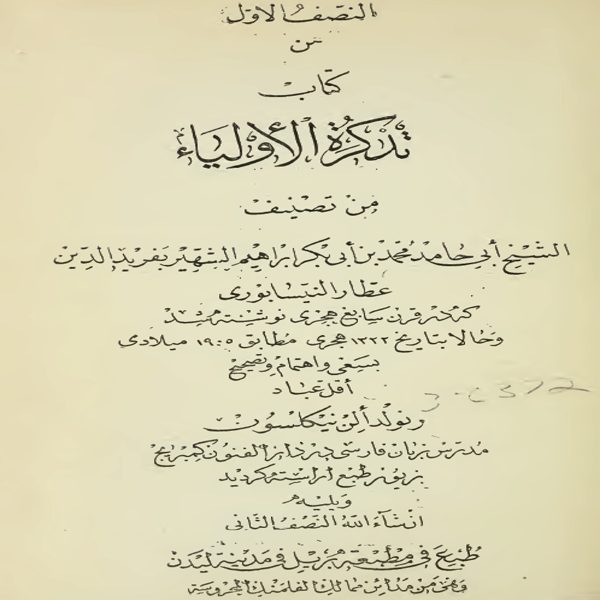 النصف الاول
من
كتاب
تذكرة الأولياء
من تصنيف
الشيخ أبي حامد محمد بن أبي بكر ابراهيم الشهير بفريد الدين
عطار النيسابورى
كه در قرن سابع هجرى نوشته شد
وحالا بتاريخ ١٣٢٢ هجرى مطابق ١٩٠٥ ميلادى
بسعى واهتمام وتصحيح
أقل عباد
رنولد ألن نيكلسون
مدرس زبان فارسى در دار الفنون كمبريج
بزيور طبع آراسته گرديد
ويليه
انشآء الله النصف الثانى
طبع فى مطبعة بريل فى مدينة ليدن
وهى من مدائن ممالك الفلمنك المحروسة